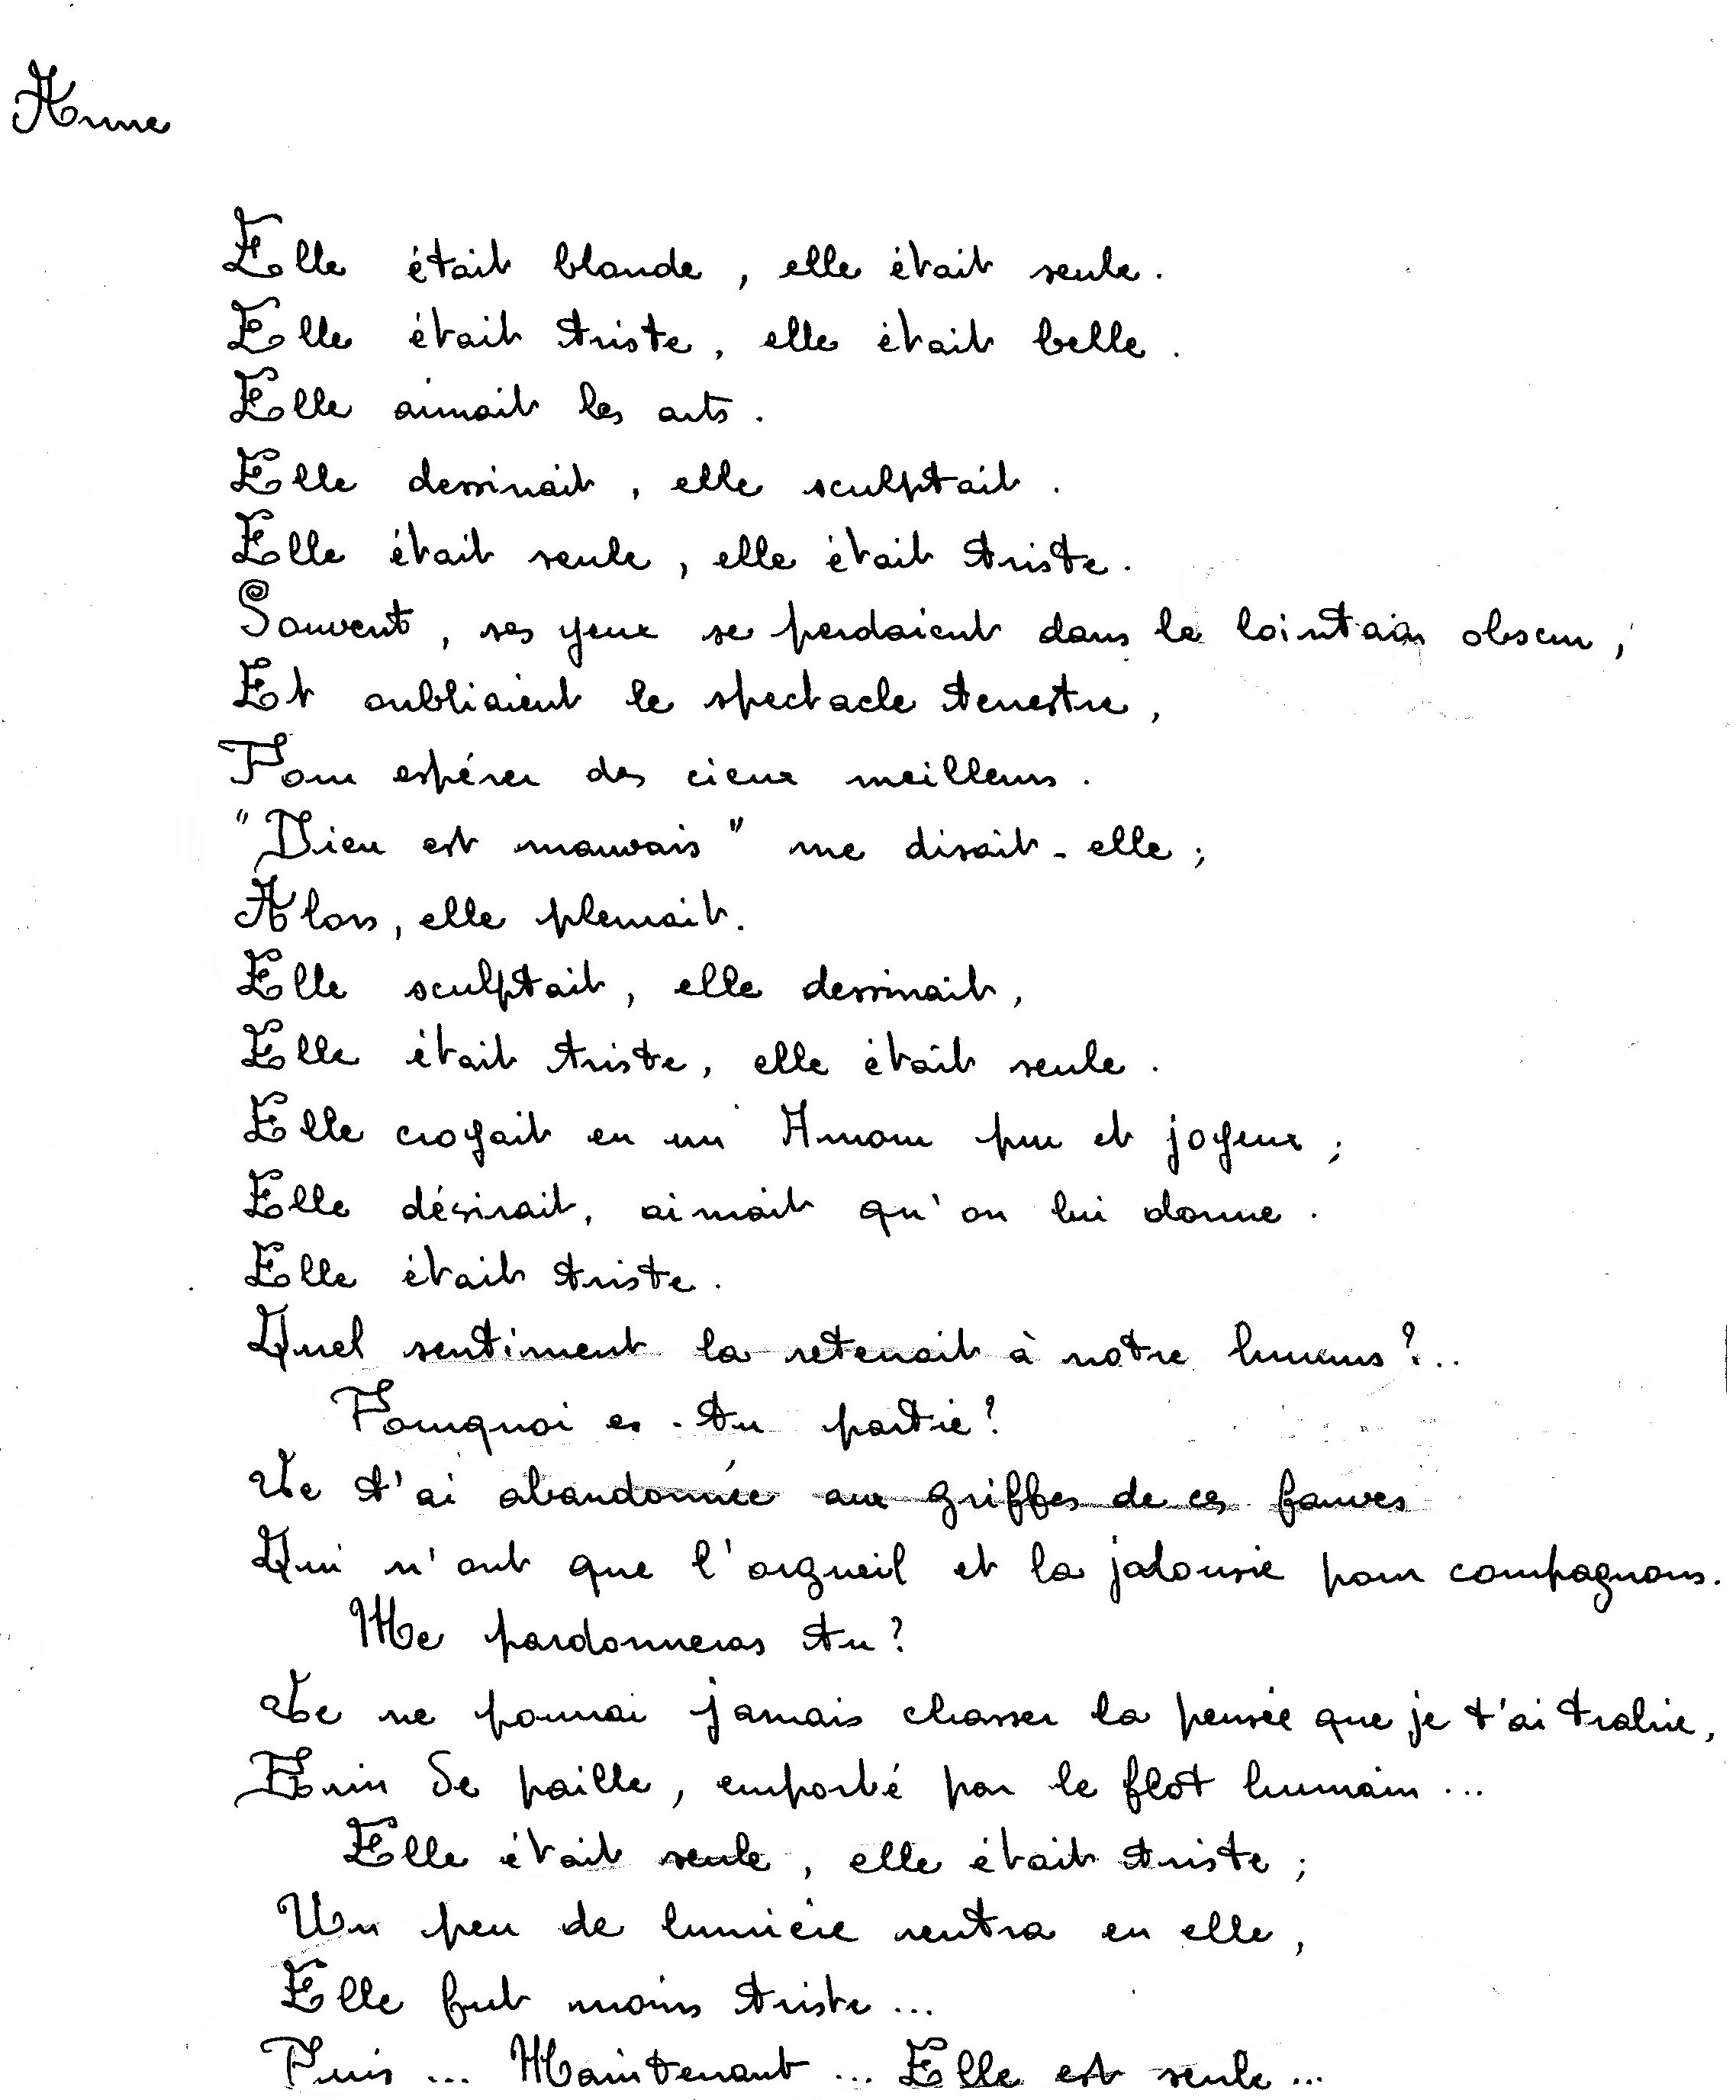 Anne
Elle était blonde, elle était seule.
Elle était triste, elle était belle.
Elle aimait les arts.
Elle dessinait, elle sculptait.
Elle était seule, elle était triste.
Souvent, ses yeux se perdaient dans le lointain obscur,
Et oubliaient le spectacle terrestre,
Pour espérer des cieux meilleurs.
"Dieu est mauvais" me disait-elle;
Alors, elle pleurait.
Elle sculptait, elle dessinait,
Elle était triste, elle était seule.
Elle croyait en un Amour pur et joyeux;
Elle désirait, aimait qu'on lui donne.
Elle était triste.
Quel sentiment la retenait à notre humus?..
Pourquoi es-tu partie?
Je t'ai abandonnée aux griffes de ces fauves
Qui n'ont que l'orgueil et la jalousie pour compagnons.
Me pardonneras tu?
Je ne pourrai jamais chasser la pensée que je t'ai trahie,
Brin de paille, emporté par le flot humain...
Elle était seule, elle était triste;
Un peu de lumière rentra en elle,
Elle fut moins triste...
Puis... Maintenant... Elle est seule...